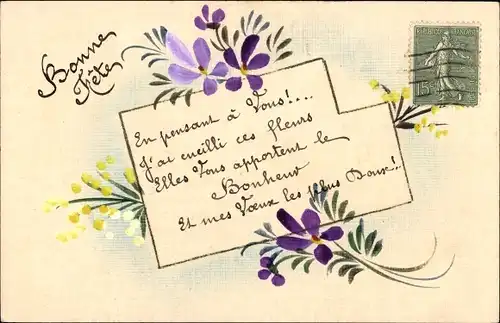 Bonne
Fête
RÉPUBLIQUE FRANÇAISE
15c
En pensant à Vous!...
J'ai cueilli ces fleurs
Elles Vous apportent le
Bonheur
Et mes Vœux les plus Doux!..